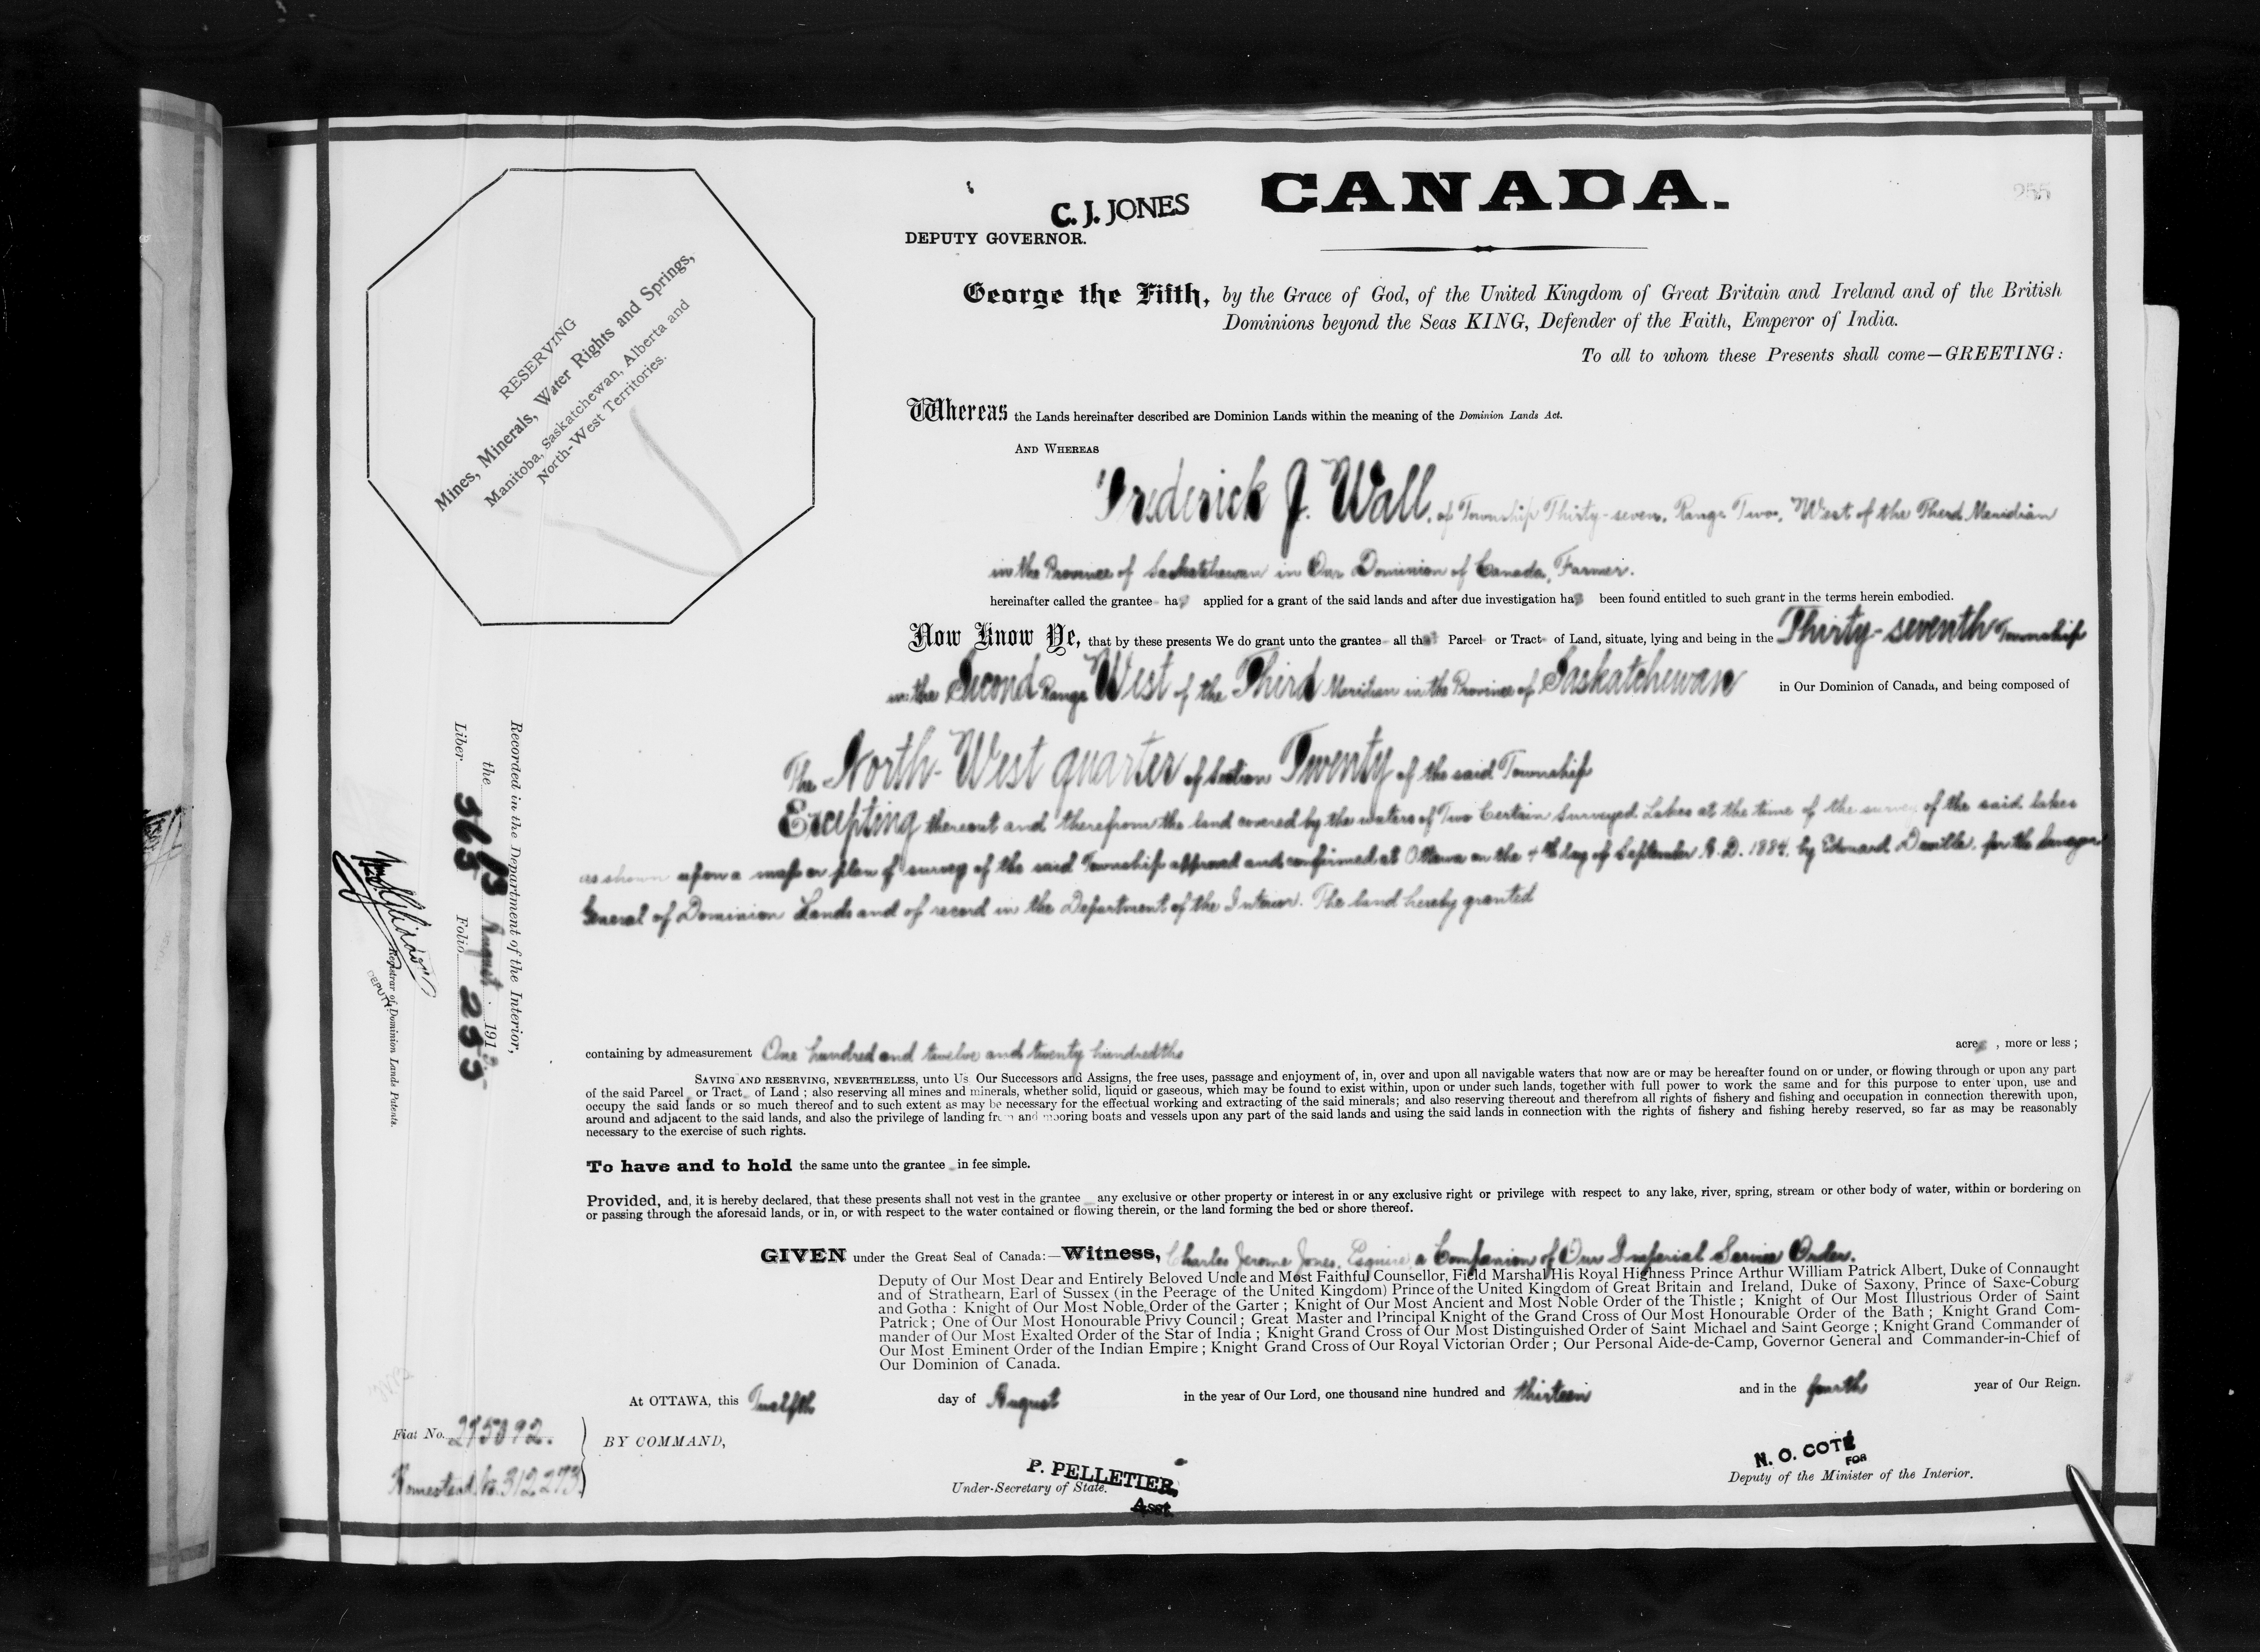 255
C. J. JONES
DEPUTY GOVERNOR.
CANADA.
RESERVING
Mines, Minerals, Water Rights and Springs,
Manitoba, Saskatchewan, Alberta and
North-West Territories.
George the Fifth, by the Grace of God, of the United Kingdom of Great Britain and Ireland and of the British
Dominions beyond the Seas KING, Defender of the Faith, Emperor of India.
To all to whom these Presents shall come—GREETING:
Whereas the Lands hereinafter described are Dominion Lands within the meaning of the Dominion Lands Act.
AND WHEREAS
Frederick J. Wall, of Township Thirty-seven, Range Two, West of the Third Meridian
in the Province of Saskatchewan in Our Dominion of Canada, Farmer.
hereinafter called the grantee has applied for a grant of the said lands and after due investigation has been found entitled to such grant in the terms herein embodied.
Now Know Ye, that by these presents We do grant unto the grantee all that Parcel or Tract of Land, situate, lying and being in the Thirty-seventh Township
in the Second Range West of the Third Meridian in the Province of Saskatchewan in Our Dominion of Canada, and being composed of
The North-West quarter of Section Twenty of the said Township
Excepting thereout and therefrom the land covered by the waters of Two Certain Surveyed Lakes at the time of the survey of the said lakes
as shown upon a map or plan of survey of the said Township approved and confirmed at Ottawa on the 4th day of September A. D. 1884, by Edouard Deville, for the Surveyor
General of Dominion Lands and of record in the Department of the Interior. The land hereby granted
containing by admeasurement One hundred and twelve and twenty hundredths acres, more or less;
SAVING AND RESERVING, NEVERTHELESS, unto Us Our Successors and Assigns, the free uses, passage and enjoyment of, in, over and upon all navigable waters that now are or may be hereafter found on or under, or flowing through or upon any part
of the said Parcel or Tract of Land; also reserving all mines and minerals, whether solid, liquid or gaseous, which may be found to exist within, upon or under such lands, together with full power to work the same and for this purpose to enter upon, use and
occupy the said lands or so much thereof and to such extent as may be necessary for the effectual working and extracting of the said minerals; and also reserving thereout and therefrom all rights of fishery and fishing and occupation in connection therewith upon,
around and adjacent to the said lands, and also the privilege of landing from and mooring boats and vessels upon any part of the said lands and using the said lands in connection with the rights of fishery and fishing hereby reserved, so far as may be reasonably
necessary to the exercise of such rights.
To have and to hold the same unto the grantee in fee simple.
Provided, and, it is hereby declared, that these presents shall not vest in the grantee any exclusive or other property or interest in or any exclusive right or privilege with respect to any lake, river, spring, stream or other body of water, within or bordering on
or passing through the aforesaid lands, or in, or with respect to the water contained or flowing therein, or the land forming the bed or shore thereof.
GIVEN under the Great Seal of Canada:—Witness, Charles Jerome Jones, Esquire, a Companion of Our Imperial Service Order.
Deputy of Our Most Dear and Entirely Beloved Uncle and Most Faithful Counsellor, Field Marshal His Royal Highness Prince Arthur William Patrick Albert, Duke of Connaught
and of Strathearn, Earl of Sussex (in the Peerage of the United Kingdom) Prince of the United Kingdom of Great Britain and Ireland, Duke of Saxony, Prince of Saxe-Coburg
and Gotha: Knight of Our Most Noble Order of the Garter; Knight of Our Most Ancient and Most Noble Order of the Thistle; Knight of Our Most Illustrious Order of Saint
Patrick; One of Our Most Honourable Privy Council; Great Master and Principal Knight of the Grand Cross of Our Most Honourable Order of the Bath; Knight Grand Com-
mander of Our Most Exalted Order of the Star of India; Knight Grand Cross of Our Most Distinguished Order of Saint Michael and Saint George; Knight Grand Commander of
Our Most Eminent Order of the Indian Empire; Knight Grand Cross of Our Royal Victorian Order; Our Personal Aide-de-Camp, Governor General and Commander-in-Chief of
Our Dominion of Canada.
At OTTAWA, this Twelfth day of August in the year of Our Lord, one thousand nine hundred and thirteen and in the fourth year of Our Reign.
Fiat No. 275892.
Homestead No. 312273
BY COMMAND,
P. PELLETIER,
Under-Secretary of State.
Asst.
N. O. COTÉ
FOR
Deputy of the Minister of the Interior.
Recorded in the Department of the Interior,
the 13 August 1913
Liber 365 Folio 255
Registrar of Dominion Lands Patents.
DEPUTY